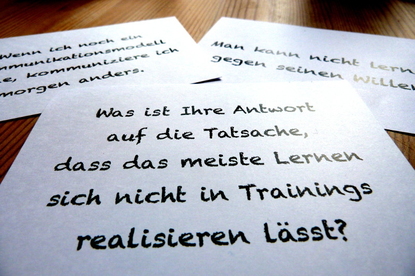 Wenn ich noch ein
mmunikationsmodell
e, kommuniziere ich
morgen anders.
Man kann nicht lern
gegen seinen Willen
Was ist Ihre Antwort
auf die Tatsache,
dass das meiste Lernen
sich nicht in Trainings
realisieren lässt?